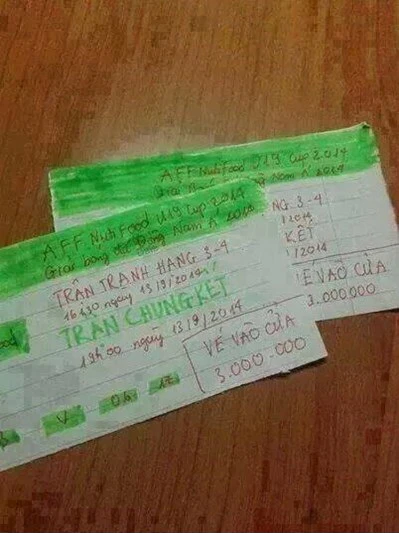 AFF Nutifood U19 Cup 2014
AFF Nutifood U19 Cup 2014
Giải bóng đá Đông Nam Á 2014
TRẬN TRANH HẠNG 3-4
16h30 ngày 13/9/2014
TRẬN CHUNG KẾT
19h00 ngày 13/9/2014
VÉ VÀO CỬA
3.000.000
ood
V
04
17
NG 3-4
/2014
KẾT
/2014
É VÀO CỬA
3.000.000